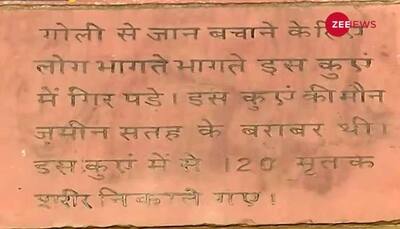 ZEE NEWS
गोली से जान बचाने के लिए
लोग भागते भागते इस कुएं
में गिर पड़े। इस कुएं की मौन
ज़मीन सतह के बराबर थी।
इस कुएं में से 120 मृतक
शरीर निकाले गए।